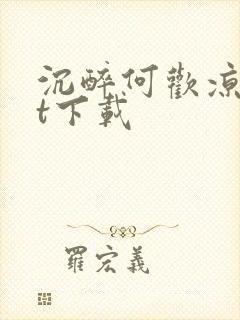 沉醉何歡涼
t下載
羅宏義